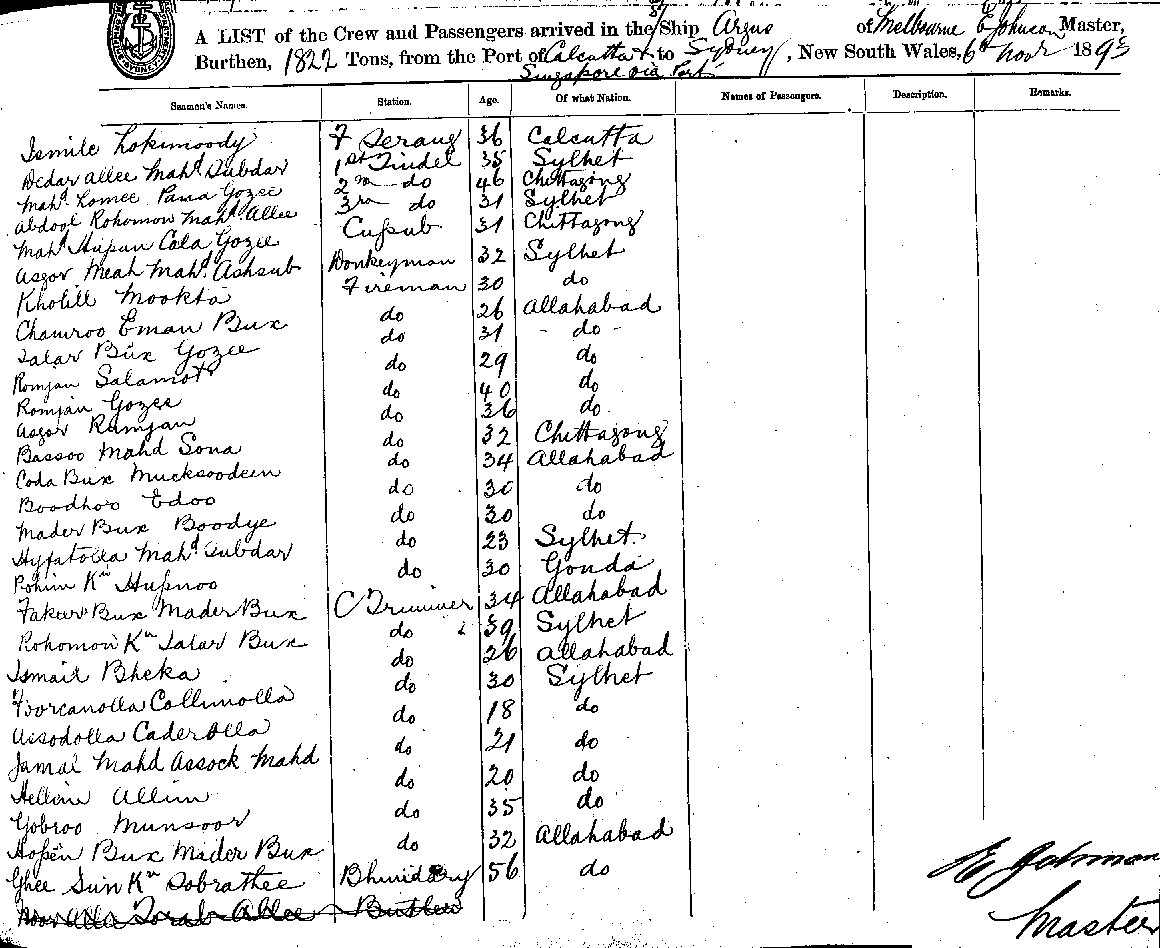 A LIST of the Crew and Passengers arrived in the S/ Ship Argus of Melbourne E Johnson, Master,
Burthen, 1822 Tons, from the Port of Calcutta & to Sydney, New South Wales, 6th Novr 1893
Singapore via Port
Seamen's Names. Station. Age. Of what Nation. Names of Passengers. Description. Remarks.
Ismile Lokimoody F Serang 36 Calcutta
Dedar Allee Mahd Subdar 1st Tindel 35 Sylhet
Mahd Lomee Pana Gozee 2nd do 46 Chittagong
Abdool Rohomon Mahd Allee 3rd do 31 Sylhet
Mahd Hupan Cala Gozee Cussub 31 Chittagong
Asgor Meah Mahd Ashsub Donkeyman 32 Sylhet
Kholill Mookta Fireman 30 do
Chamroo Eman Bux do 26 Allahabad
Salar Bux Gozee do 31 - do -
Romjan Salamot do 29 do
Romjan Gozee do 40 do
Asgor Ramjan do 36 do
Bassoo Mahd Sona do 32 Chittagong
Coda Bux Mucksoodeen do 34 Allahabad
Boodhoo Edoo do 30 do
Mader Bux Boodye do 30 do
Hyfatolla Mahd Subdar do 23 Sylhet
Rohim Kn Hupnoo do 30 Gonda
Fakur Bux Mader Bux C Trimmer 34 Allahabad
Rohomon Kn Salar Bux do 39 Sylhet
Ismail Bheka do 26 Allahabad
Foorcanolla Collimolla do 30 Sylhet
Ussodolla Caderolla do 18 do
Jamal Mahd Assock Mahd do 21 do
Hellim Ullim do 20 do
Gobroo Munsoor do 35 do
Hosen Bux Mader Bux do 32 Allahabad
Ghee Sun Kn Sobrathee Bhundary 56 do
Torab Allee Butler
E Johnson
Master